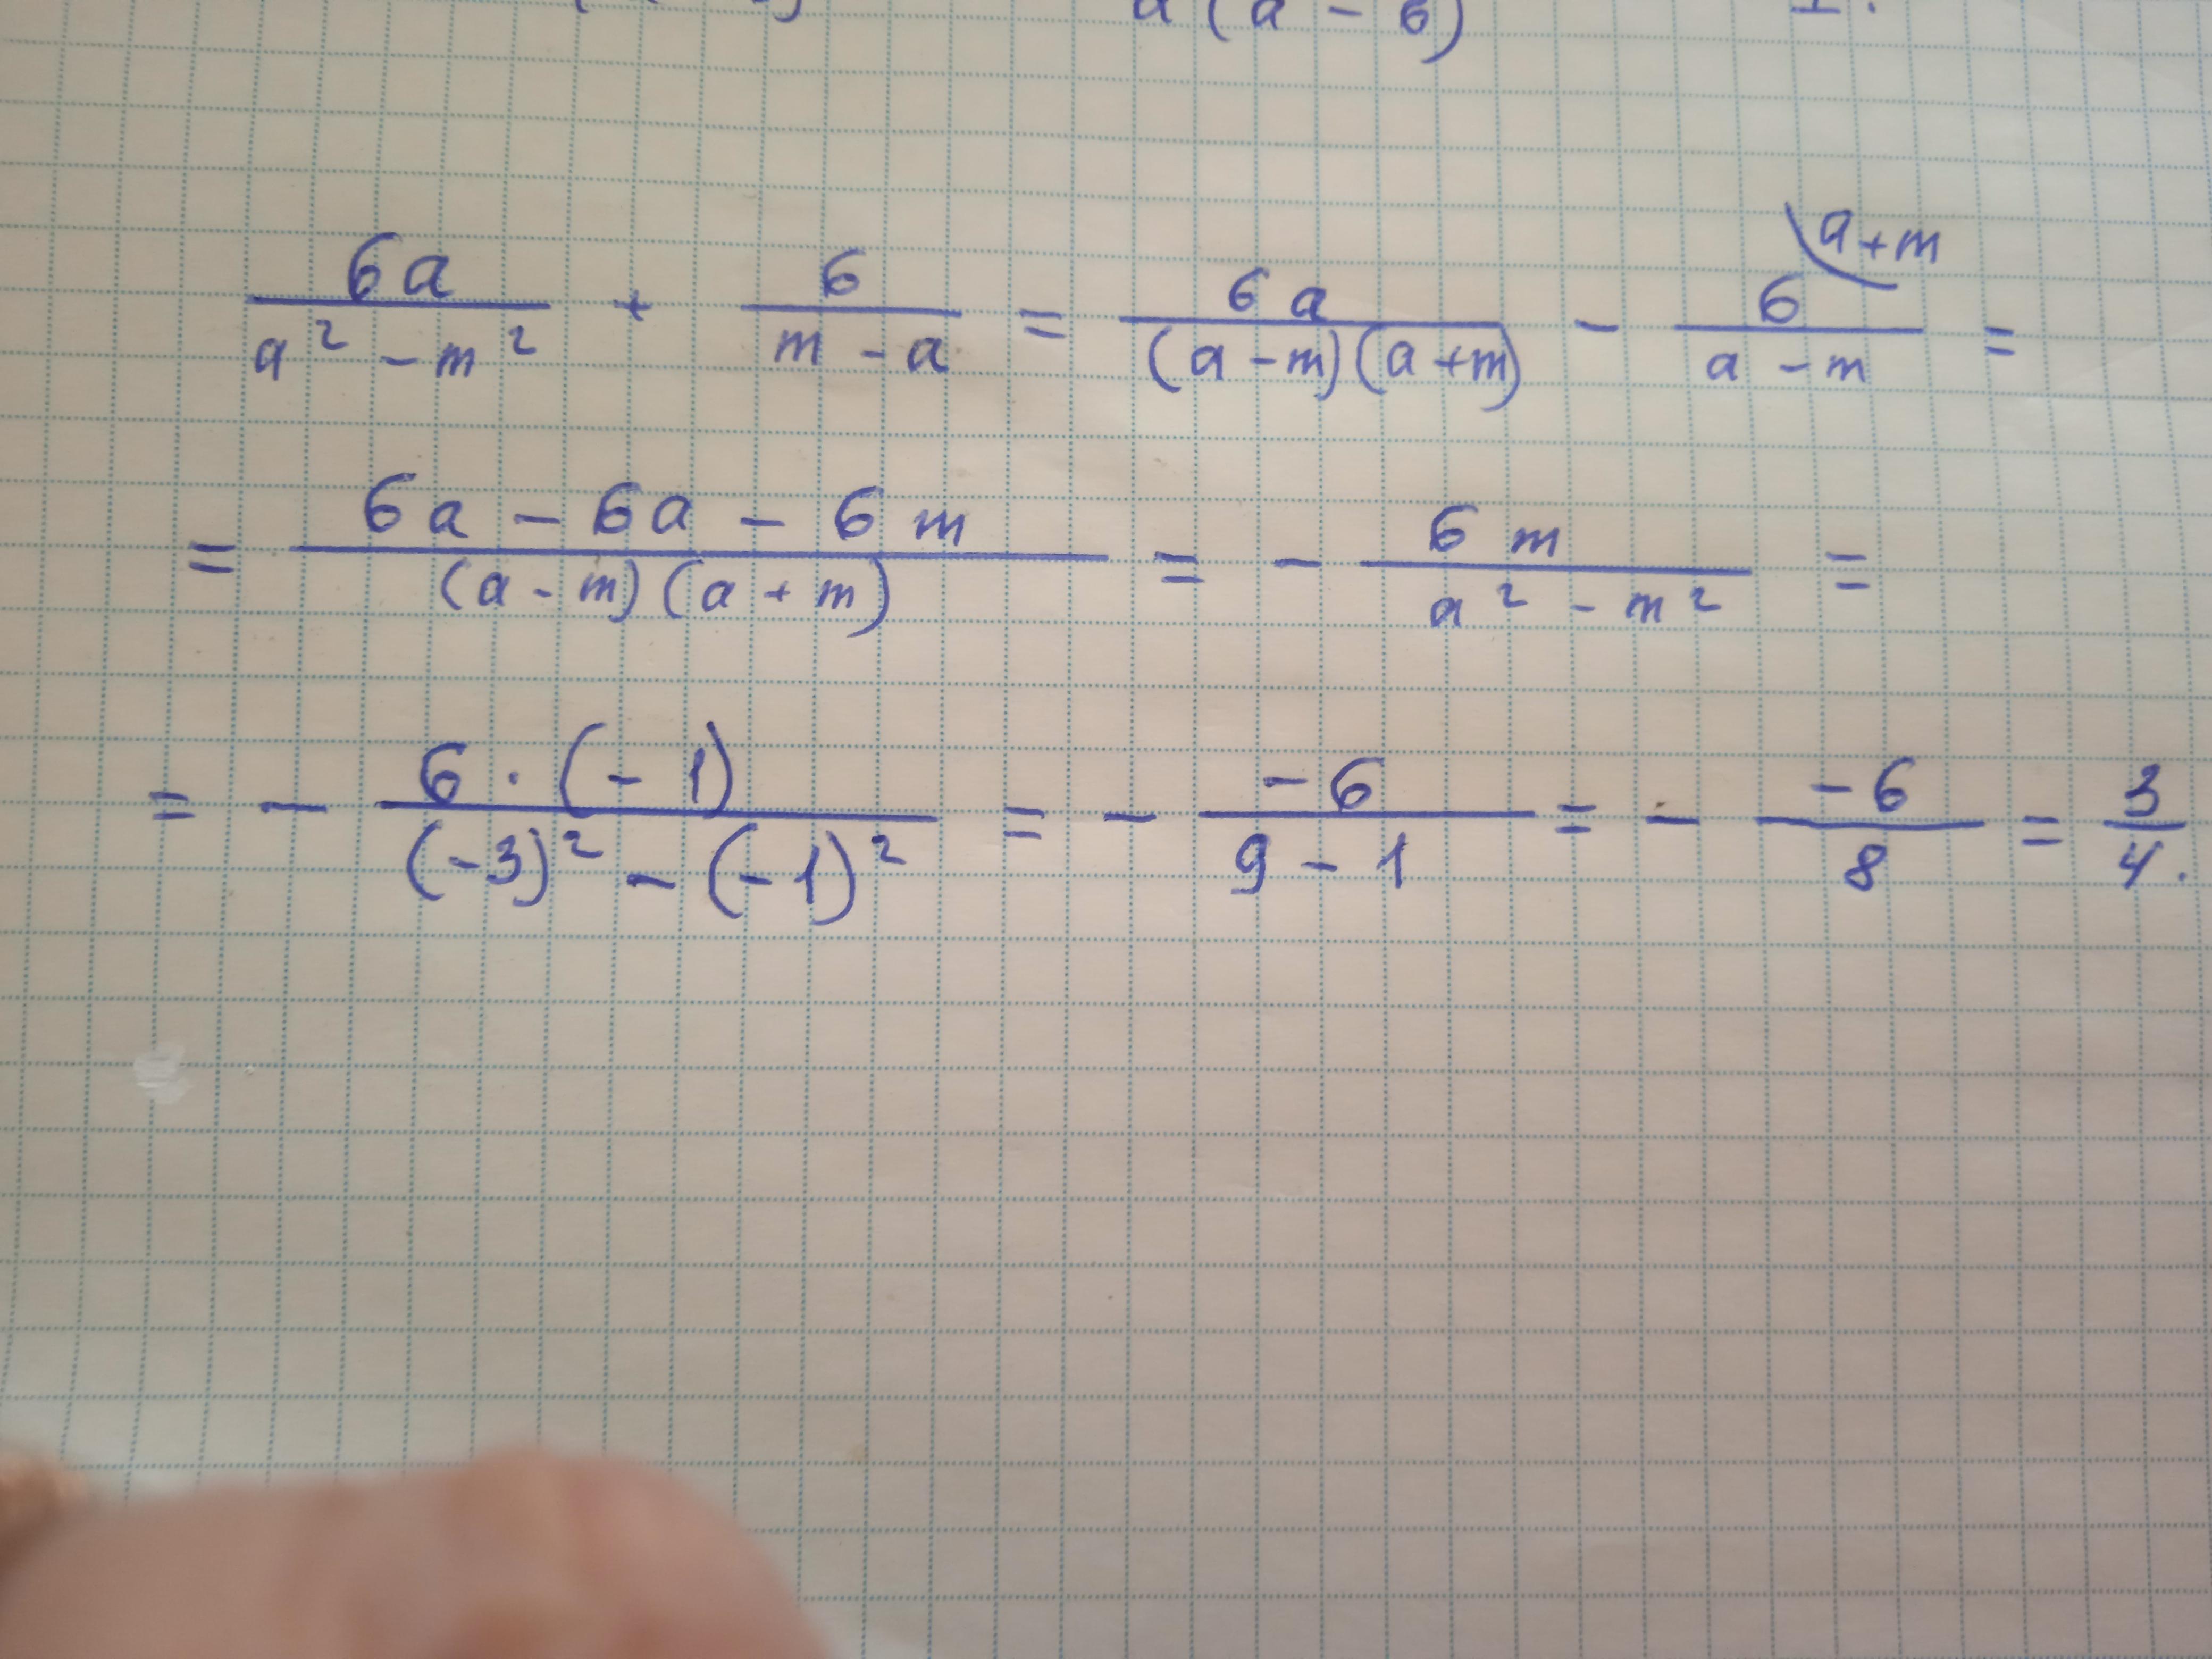 a(a - 6)
6a/(a² - m²) + 6/(m - a) = 6a/((a - m)(a + m)) - 6\a+m/(a - m) =
= (6a - 6a - 6m)/((a - m)(a + m)) = - 6m/(a² - m²) =
= - (6 · (-1))/((-3)² - (-1)²) = - (-6)/(9 - 1) = - (-6)/8 = 3/4.